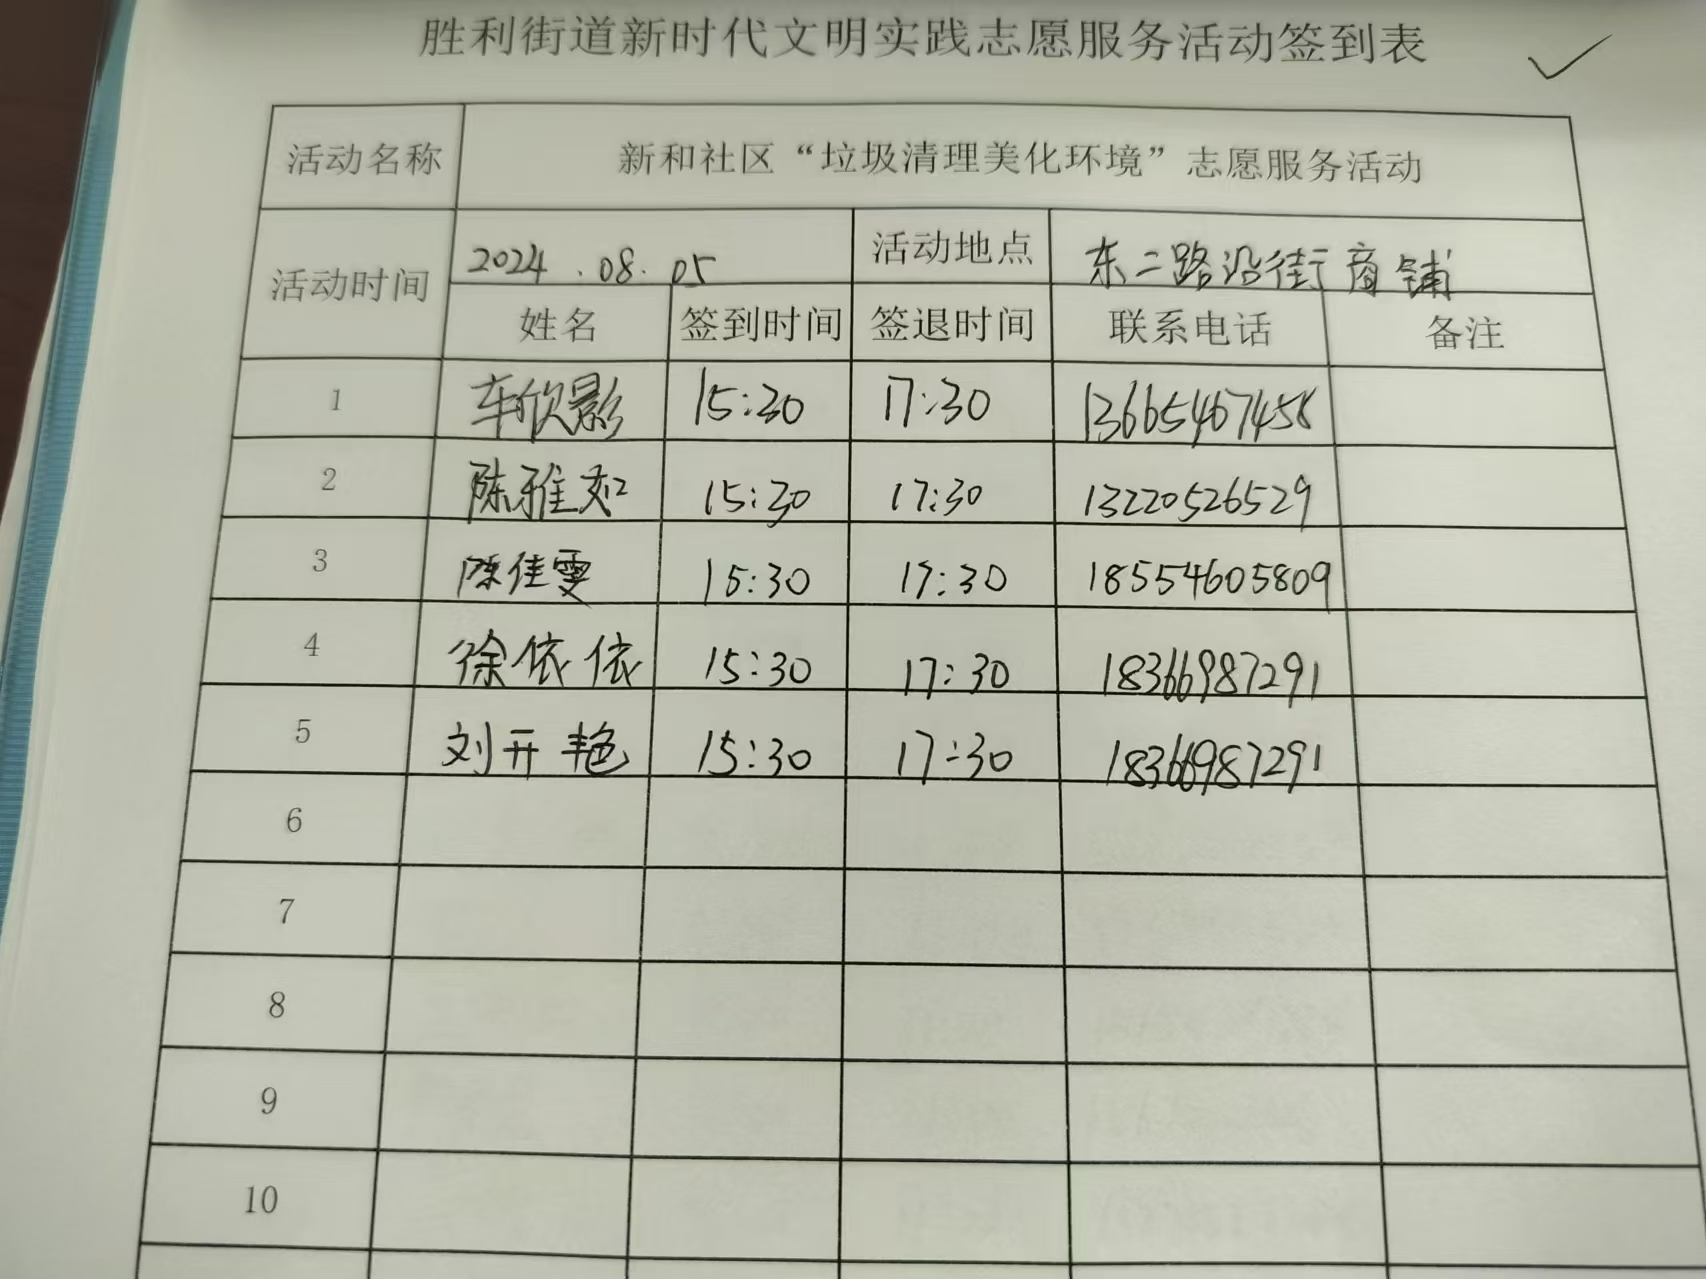 胜利街道新时代文明实践志愿服务活动签到表
活动名称 新和社区“垃圾清理美化环境”志愿服务活动
活动时间 2024.08.05 活动地点 东二路沿街商铺
姓名 签到时间 签退时间 联系电话 备注
1 车欣影 15:30 17:30 13665467458
2 陈雅如 15:30 17:30 13220526529
3 陈佳雯 15:30 17:30 18554605809
4 徐依依 15:30 17:30 18366987291
5 刘开艳 15:30 17:30 18366987291
6
7
8
9
10